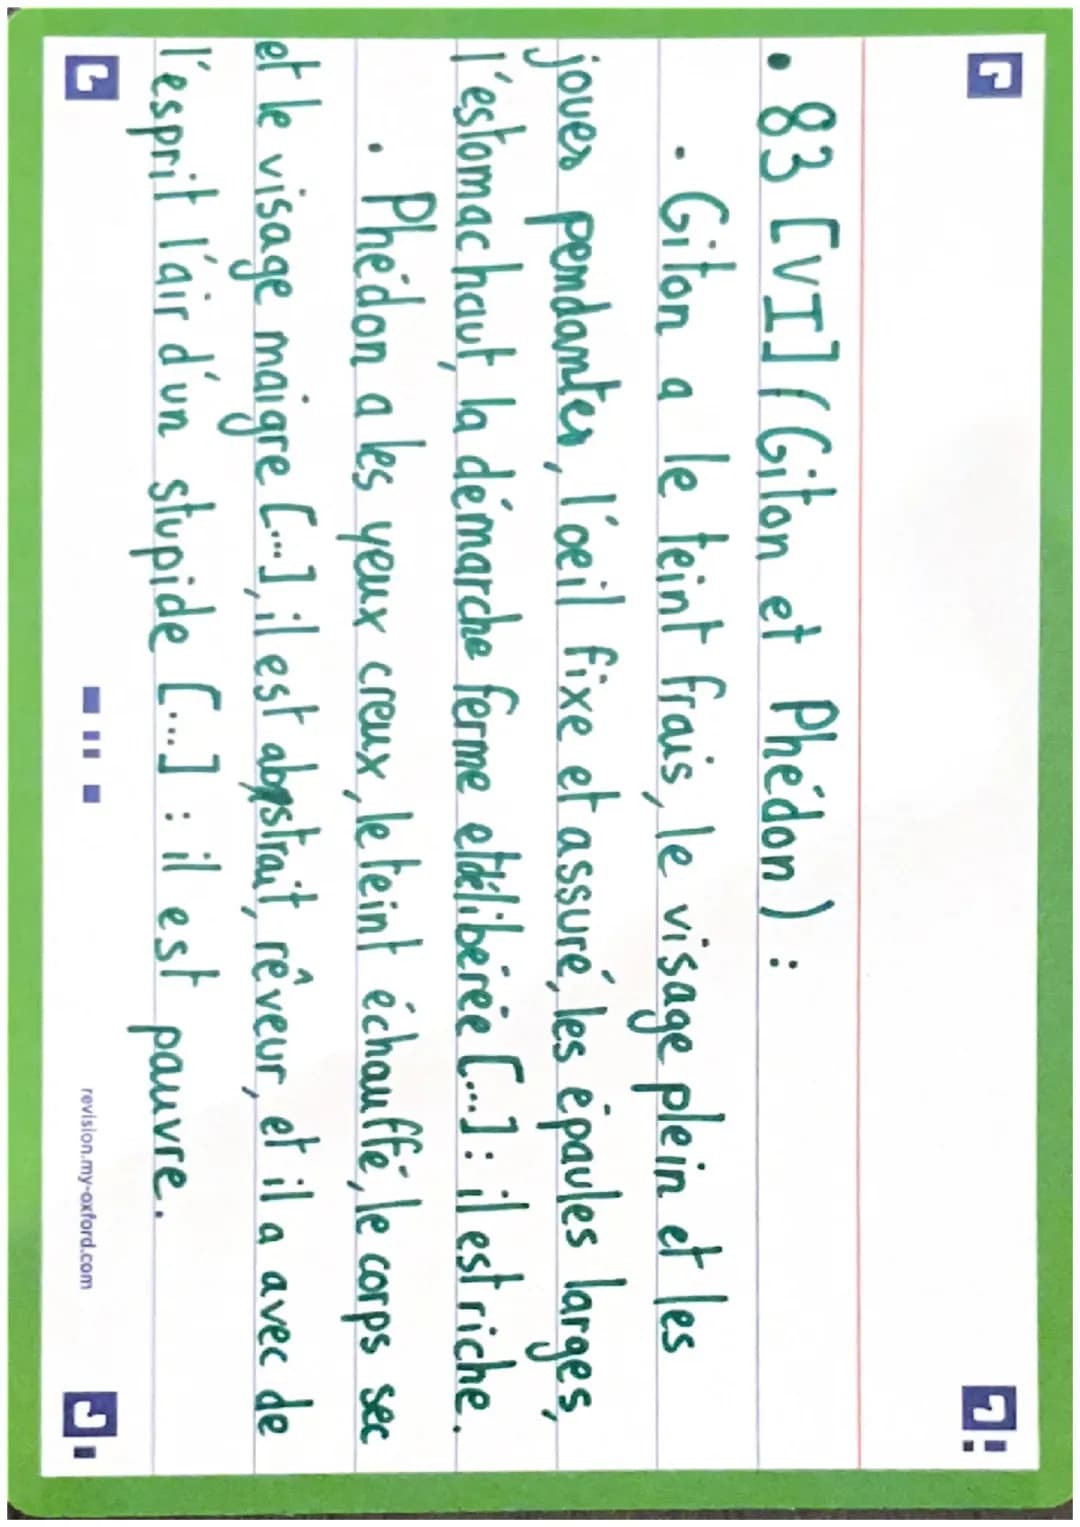 • 83 [VI] (Giton et Phédon) :
• Giton a le teint frais, le visage plein et les
joues pendantes, l'oeil fixe et assuré, les épaules larges,
l'estomac haut, la démarche ferme et délibérée [...] : il est riche.
• Phédon a les yeux creux, le teint échauffé, le corps sec
et le visage maigre [...], il est abstrait, rêveur, et il a avec de
l'esprit l'air d'un stupide [...] : il est pauvre.
revision.my-oxford.com